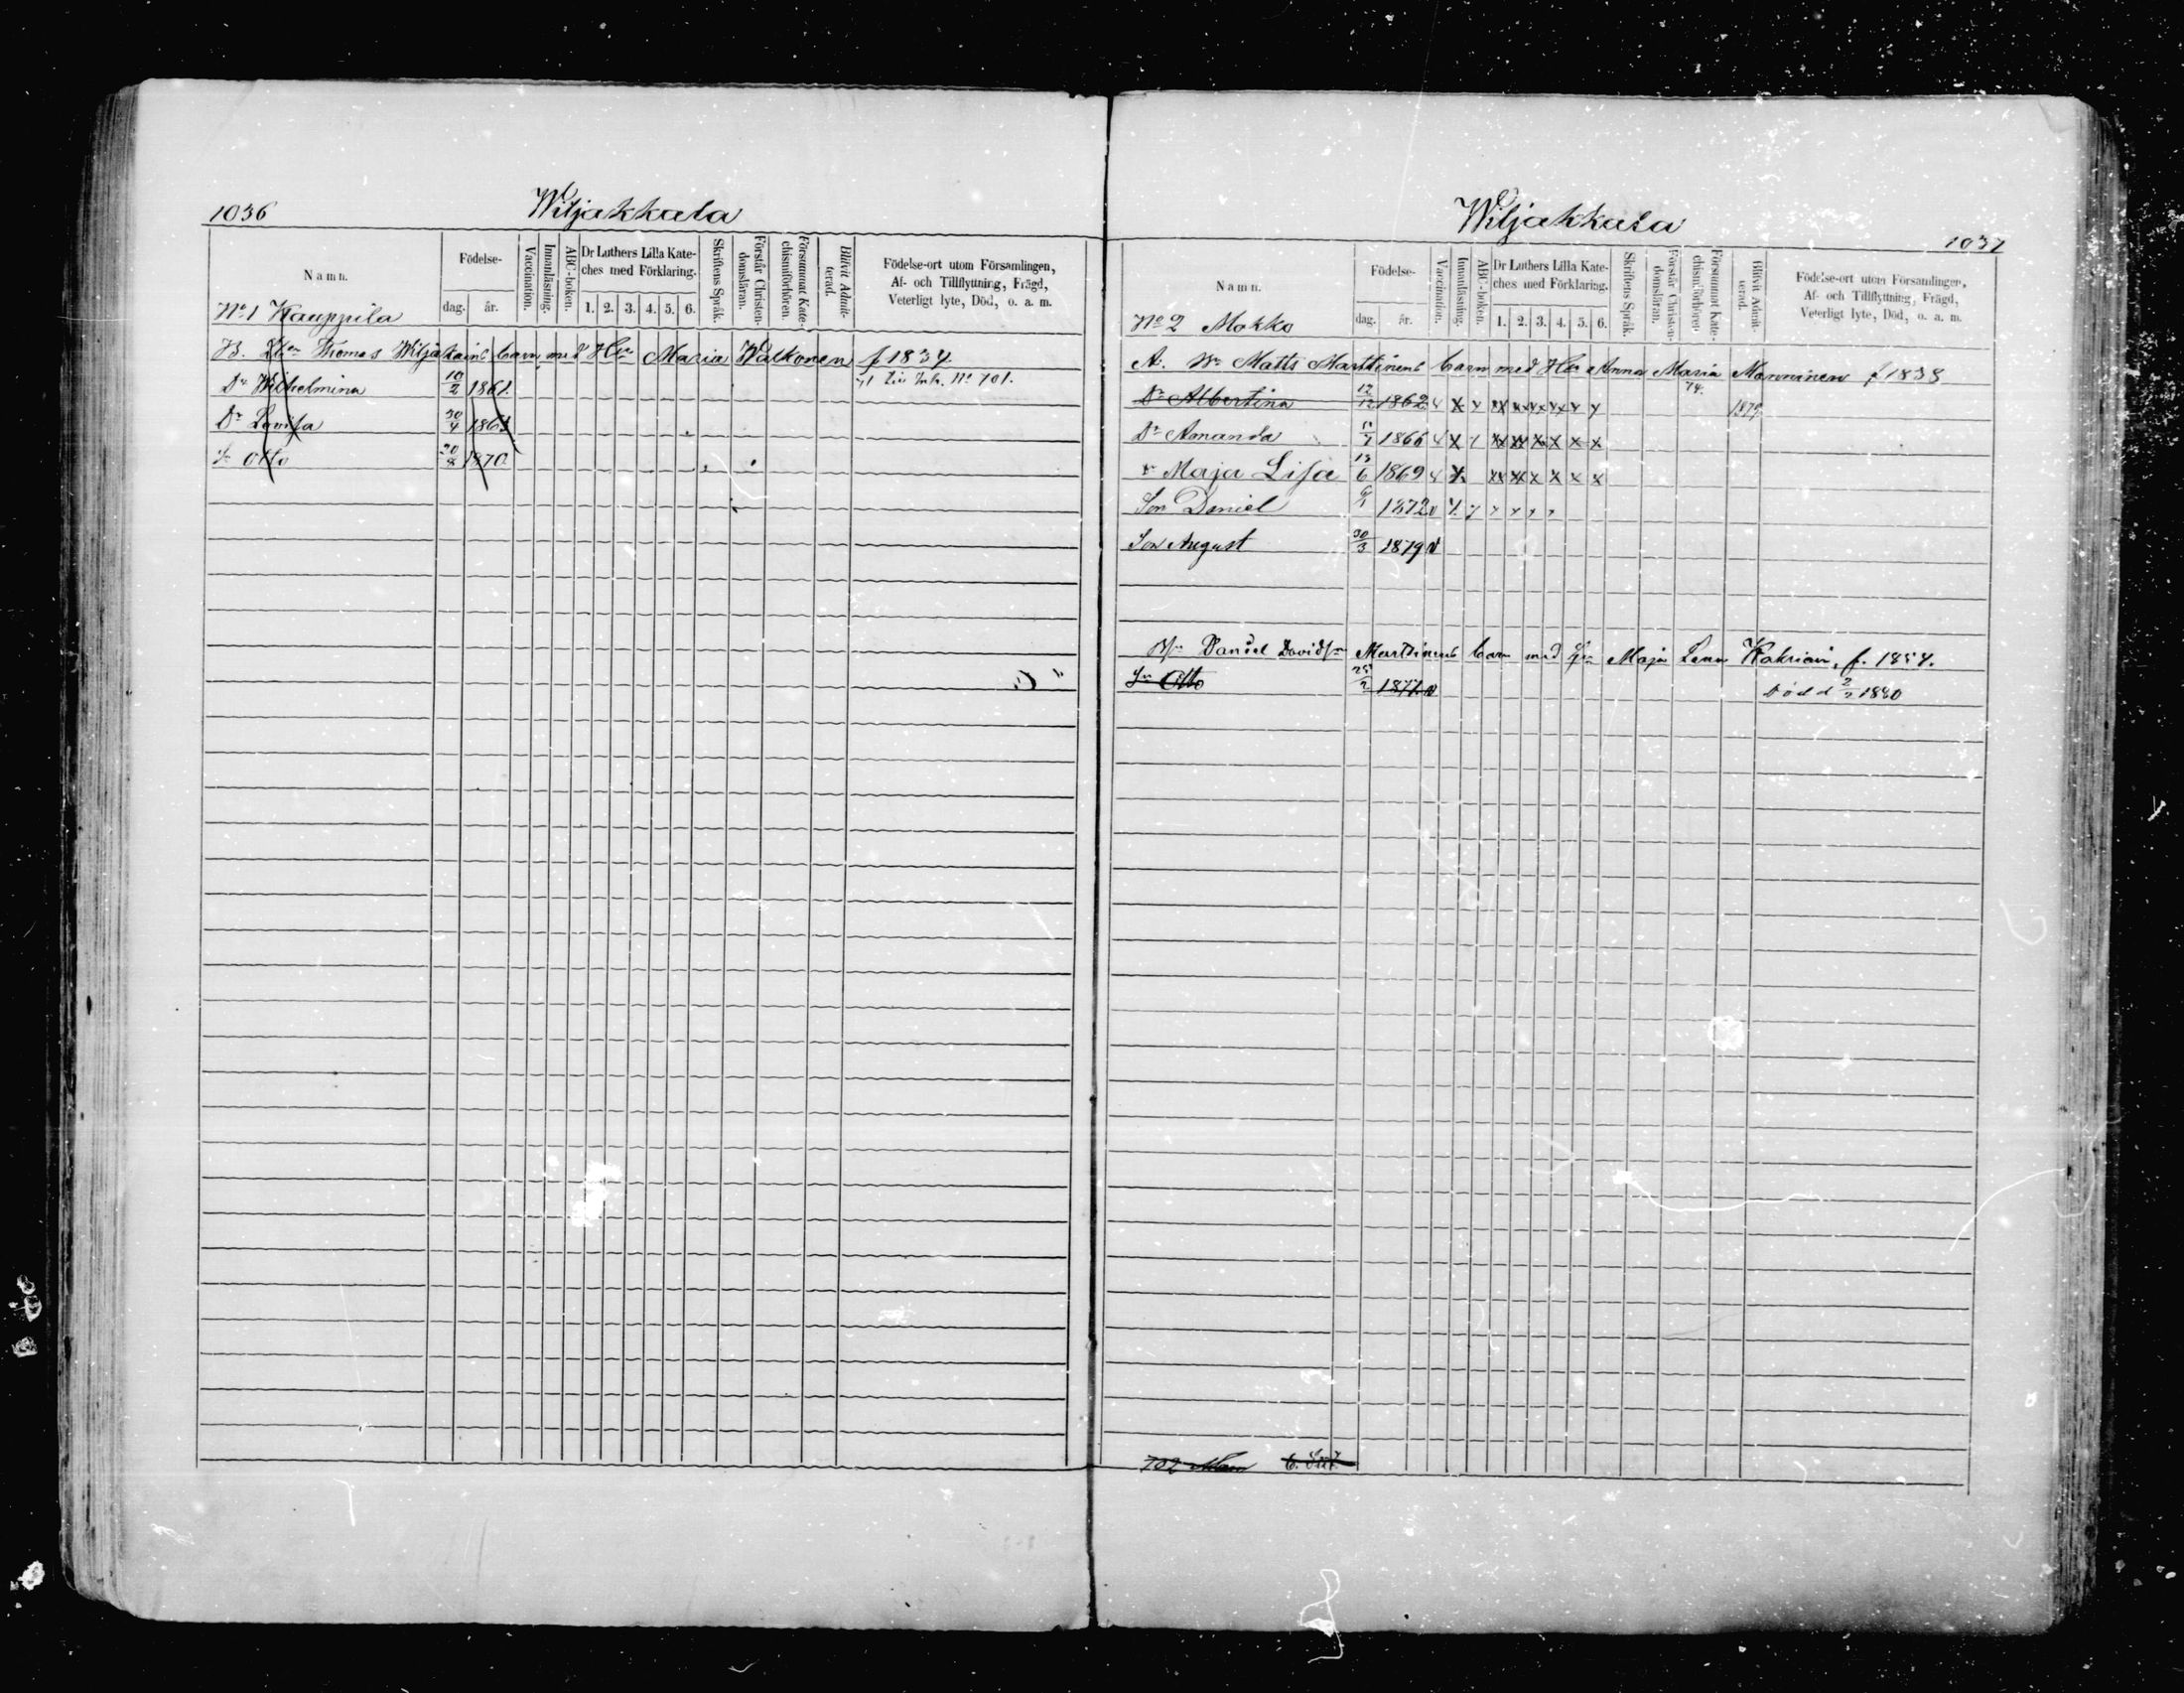 1036
Wiljakkala
Namn.
Födelse-
dag.
år.
Vaccination.
Innanläsning.
ABC-boken.
Dr Luthers Lilla Kate-
ches med Förklaring.
1. 2. 3. 4. 5. 6.
Skriftens Språk.
Förstår Christen-
domsläran.
Försummat Kate-
chismiförhören.
Blifvit Admit-
terad.
Födelse-ort utom Församlingen,
Af- och Tillflyttning, Frägd,
Veterligt lyte, Död, o. a. m.
No 1 Kauppila
B. Thomas Wiljakains barn med Hu Maria Walkonen f 1834.
Dr Wilhelmina 10/2 1861. No 701.
Dr Lovisa 30/4 1863
Sn Otto 20/2 1870.
Wiljakkala
1037
Namn.
Födelse-
dag.
år.
Vaccination.
Innanläsning.
ABC-boken.
Dr Luthers Lilla Kate-
ches med Förklaring.
1. 2. 3. 4. 5. 6.
Skriftens Språk.
Förstår Christen-
domsläran.
Försummat Kate-
chismiförhören.
Blifvit Admit-
terad.
Födelse-ort utom Församlingen,
Af- och Tillflyttning, Frägd,
Veterligt lyte, Död, o. a. m.
No 2 Mokko
A. Matts Marttinens barn med Hu Anna Maria Manninen f 1838
Dr Albertina 12/12 1862 74. 1879.
Dr Amanda 1866
Dr Maja Lisa 13/6 1869
Son Daniel 1872
Son August 30/3 1879
Daniel Davidsn Marttinens barn med Maja Lena Kakriain, f. 1854.
Sn Otto 25/2 1877. Död d 2/2 1880
702